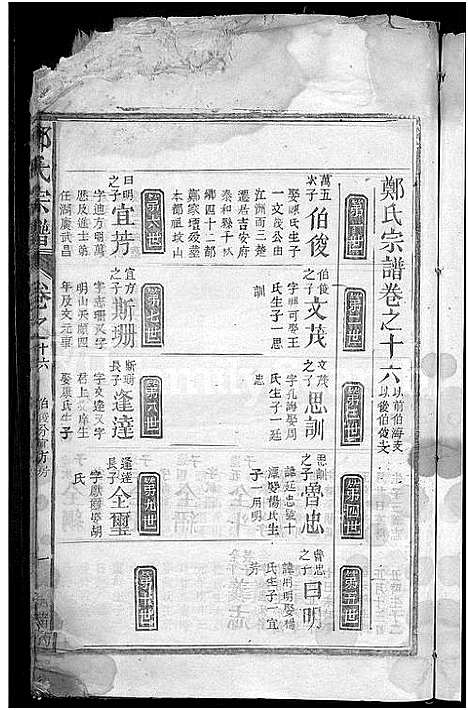 鄭氏宗譜卷之十六
以前伯海支
以後伯俊支
第一世
第二世
第三世
第四世
第五世
萬五次子
伯俊
娶陳氏生子
一文茂公由
江湘而三楚
遷居吉安府
泰和縣千秋
鄉四十二都
鄭家壇歿塟
本都祖坟山
伯俊之子
文茂
字
娶王
氏生子一思
訓
文茂之子
思訓
字孔海娶周
氏生子一廷
忠
思訓之子
魯忠
諱廷忠號十
潭娶楊氏生
子一用明
魯忠之子
曰明
諱用明娶楊
氏生子一宜
芳
第六世
第七世
第八世
第九世
第十世
曰明之子
宜芳
字迪方明萬
歷及進士第
任湖廣武昌
宜方之子
斯珊
字志珊又字
明山天順四
年及文元
斯珊長子
逢達
字文達又字
君上文庠生
娶康氏生子
逢達長子
全璽
字
胡
氏
鄭氏宗譜
卷之十六
伯俊分
方房
一